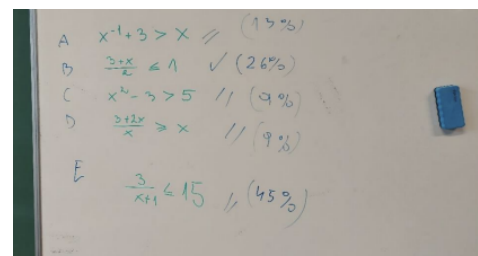 A x⁻¹+3 > x // (13%)
B (3+x)/2 ≤ 1 ✓ (26%)
C x²-3 > 5 // (9%)
D (3+2x)/x ≥ x // (9%)
E 3/(x+1) ≤ 15 // (45%)